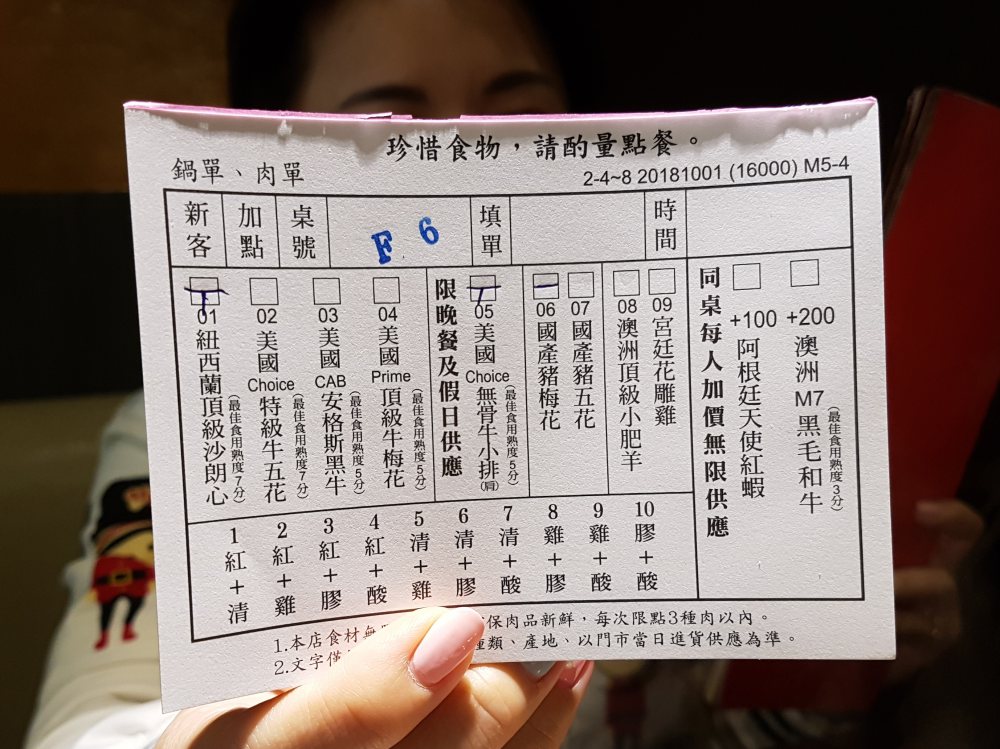 珍惜食物，請酌量點餐。
鍋單、肉單
2-4~8 20181001 (16000) M5-4
新客
加點
桌號
F 6
填單
時間
01 紐西蘭頂級沙朗心
(最佳食用熟度7分)
02 美國Choice特級牛五花
(最佳食用熟度7分)
03 美國CAB安格斯黑牛
(最佳食用熟度5分)
04 美國Prime頂級牛梅花
(最佳食用熟度5分)
限晚餐及假日供應
05 美國Choice無骨牛小排(肩)
(最佳食用熟度5分)
06 國產豬梅花
07 國產豬五花
08 澳洲頂級小肥羊
09 宮廷花雕雞
同桌每人加價無限供應
+100 阿根廷天使紅蝦
+200 澳洲M7黑毛和牛
(最佳食用熟度3分)
1 紅+清
2 紅+雞
3 紅+膠
4 紅+酸
5 清+雞
6 清+膠
7 清+酸
8 雞+膠
9 雞+酸
10 膠+酸
1.本店食材無 保肉品新鮮，每次限點3種肉以內。
2.文字僅 種類、產地、以門市當日進貨供應為準。